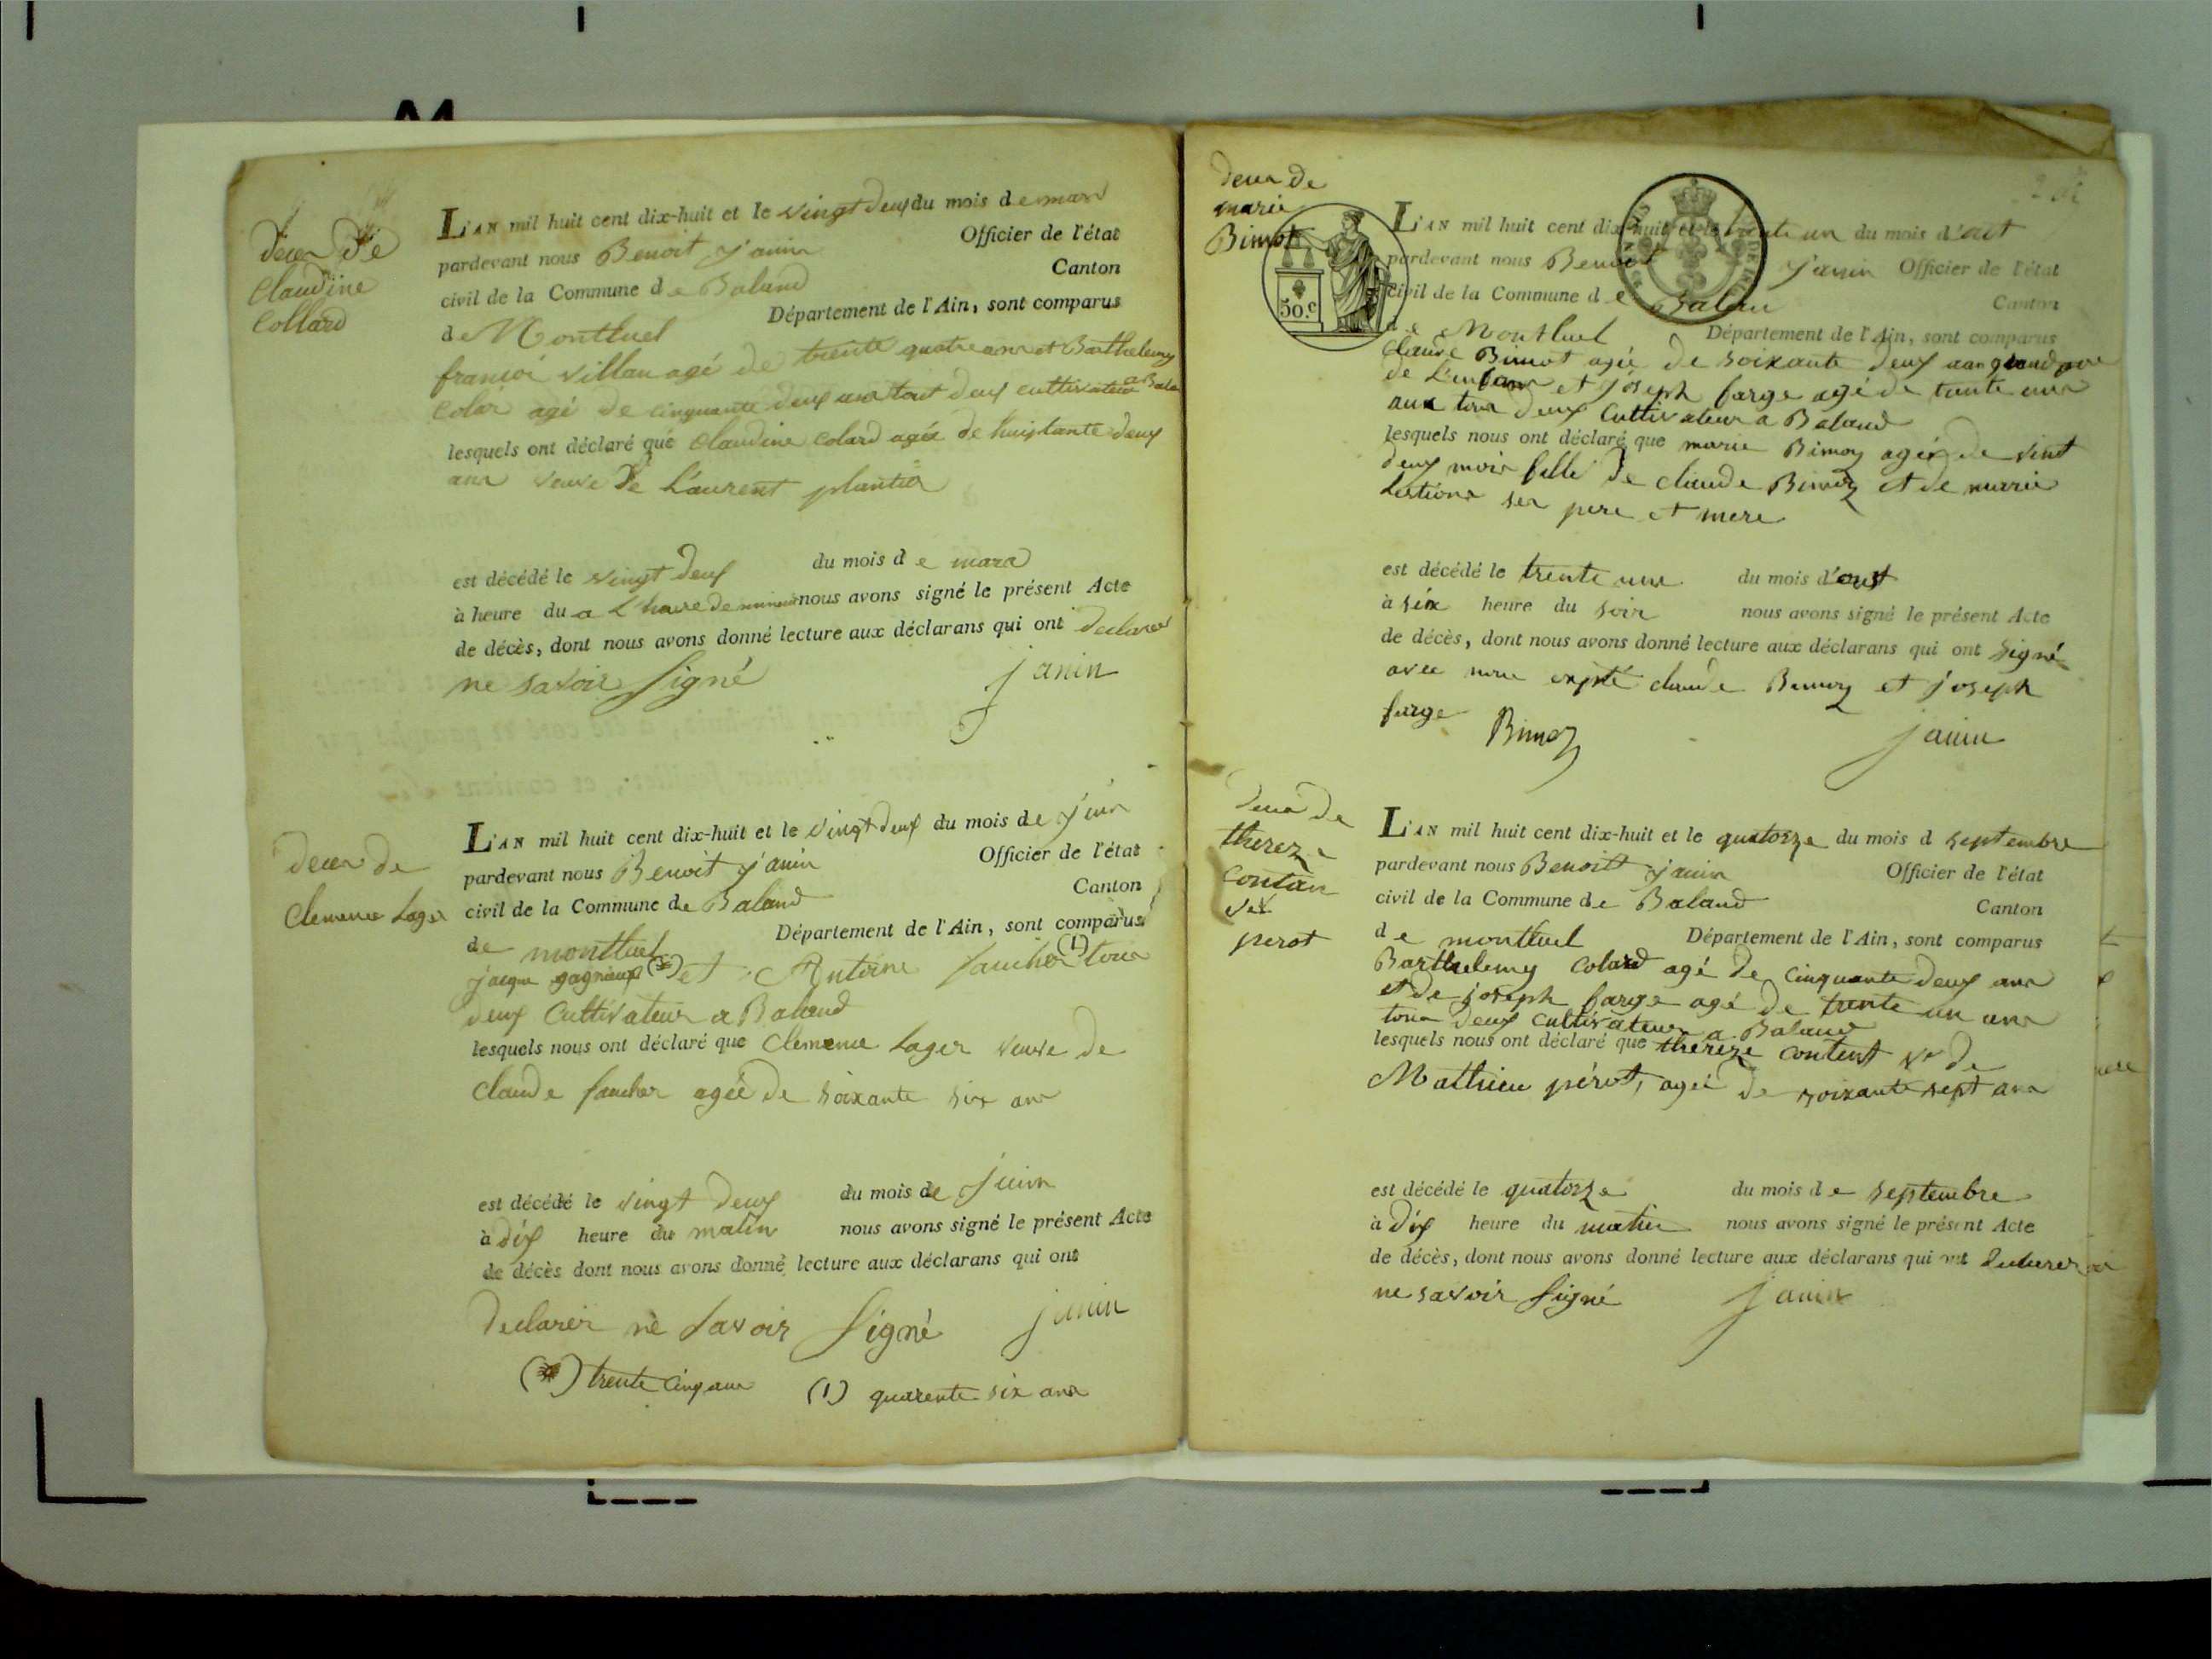 Deces De
Claudine
Collard
L'AN mil huit cent dix-huit et le vingt deux du mois de mars
pardevant nous Benoit Janin Officier de l'état
civil de la Commune de Baland Canton
de Montluel Département de l'Ain, sont comparus
françoi villan agé de trente quatre ans et Barthelemy
Colar agé de cinquante deux ans tout deux cultivateur a Bala
lesquels ont déclaré que Claudine Colard agée de huiptante deux
ans veuve De Laurent plantier
est décédé le vingt deux du mois de mars
à heure du a L'heure de nous avons signé le présent Acte
de décès, dont nous avons donné lecture aux déclarans qui ont declarer
ne savoir signé janin
deces de
Clemence Lager
L'AN mil huit cent dix-huit et le vingt deux du mois de Juin
pardevant nous Benoit Janin Officier de l'état
civil de la Commune de Baland Canton
de montluel Département de l'Ain, sont comparus
jacque gagnieux (*) et Antoine faucher (1) tous
deux Cultivateur a Baland
lesquels nous ont déclaré que Clemence Lager veuve de
Claude faucher agée de soixante six ans
est décédé le vingt deux du mois de Juin
à dix heure du matin nous avons signé le présent Acte
de décès dont nous avons donné lecture aux déclarans qui ont
Declarer ne savoir signé janin
(*) trente cinq ans (1) quarente six ans
deces de
marie
Bimot
50.c
L'AN mil huit cent dix-huit et le trente un du mois d'out
pardevant nous Benoit Janin Officier de l'état
civil de la Commune de Balan Canton
de Montluel Département de l'Ain, sont comparus
Claude Bimot agée de soixante deux ans grand pere
de L'enfans et joseph farge agé de trente une
ans tous deux Cultivateur a Baland
lesquels nous ont déclaré que marie Bimoz agée de vint
deux mois fille de claude Bimoz et de marie
ses pere et mere
est décédé le trente une du mois d'oust
à six heure du soir nous avons signé le présent Acte
de décès, dont nous avons donné lecture aux déclarans qui ont signé
avec nous claude Bimoz et joseph
farge Bimoz janin
deces de
thereze
Contan
vev
perot
L'AN mil huit cent dix-huit et le quatorze du mois d septembre
pardevant nous Benoitt Janin Officier de l'état
civil de la Commune de Baland Canton
de montluel Département de l'Ain, sont comparus
Barthelemy Colard agé de cinquante deux ans
et de joseph farge agé de trente un ans
tous deux cultivateur a Baland
lesquels nous ont déclaré que thereze content ve de
Mathieu pérot, agée de soixante sept ans
est décédé le quatorze du mois de septembre
à dix heure du matin nous avons signé le présent Acte
de décès, dont nous avons donné lecture aux déclarans qui ont declarer
ne savoir signé Janin